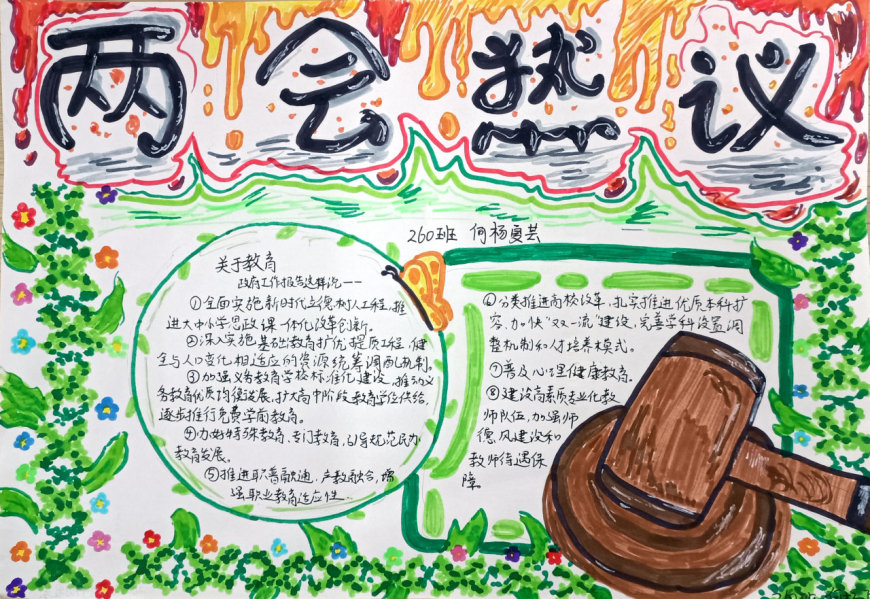 两会热议
260班 何杨夏芸
关于教育
政府工作报告这样说——
①全面实施新时代立德树人工程,推
进大中小学思政课一体化改革创新。
②深入实施基础教育扩优提质工程,健
全与人口变化相适应的资源统筹调配机制。
③加强义务教育学校标准化建设,推动义
务教育优质均衡发展,扩大高中阶段教育学位供给,
逐步推行免费学前教育。
④办好特殊教育、专门教育,引导规范民办
教育发展。
⑤推进职普融通,产教融合,增
强职业教育适应性...
⑥分类推进高校改革,扎实推进优质本科扩
容,加快“双一流”建设,完善学科设置调
整机制和人才培养模式。
⑦普及心理健康教育。
⑧建设高素质专业化教
师队伍,加强师
德师风建设和
教师待遇保
障。